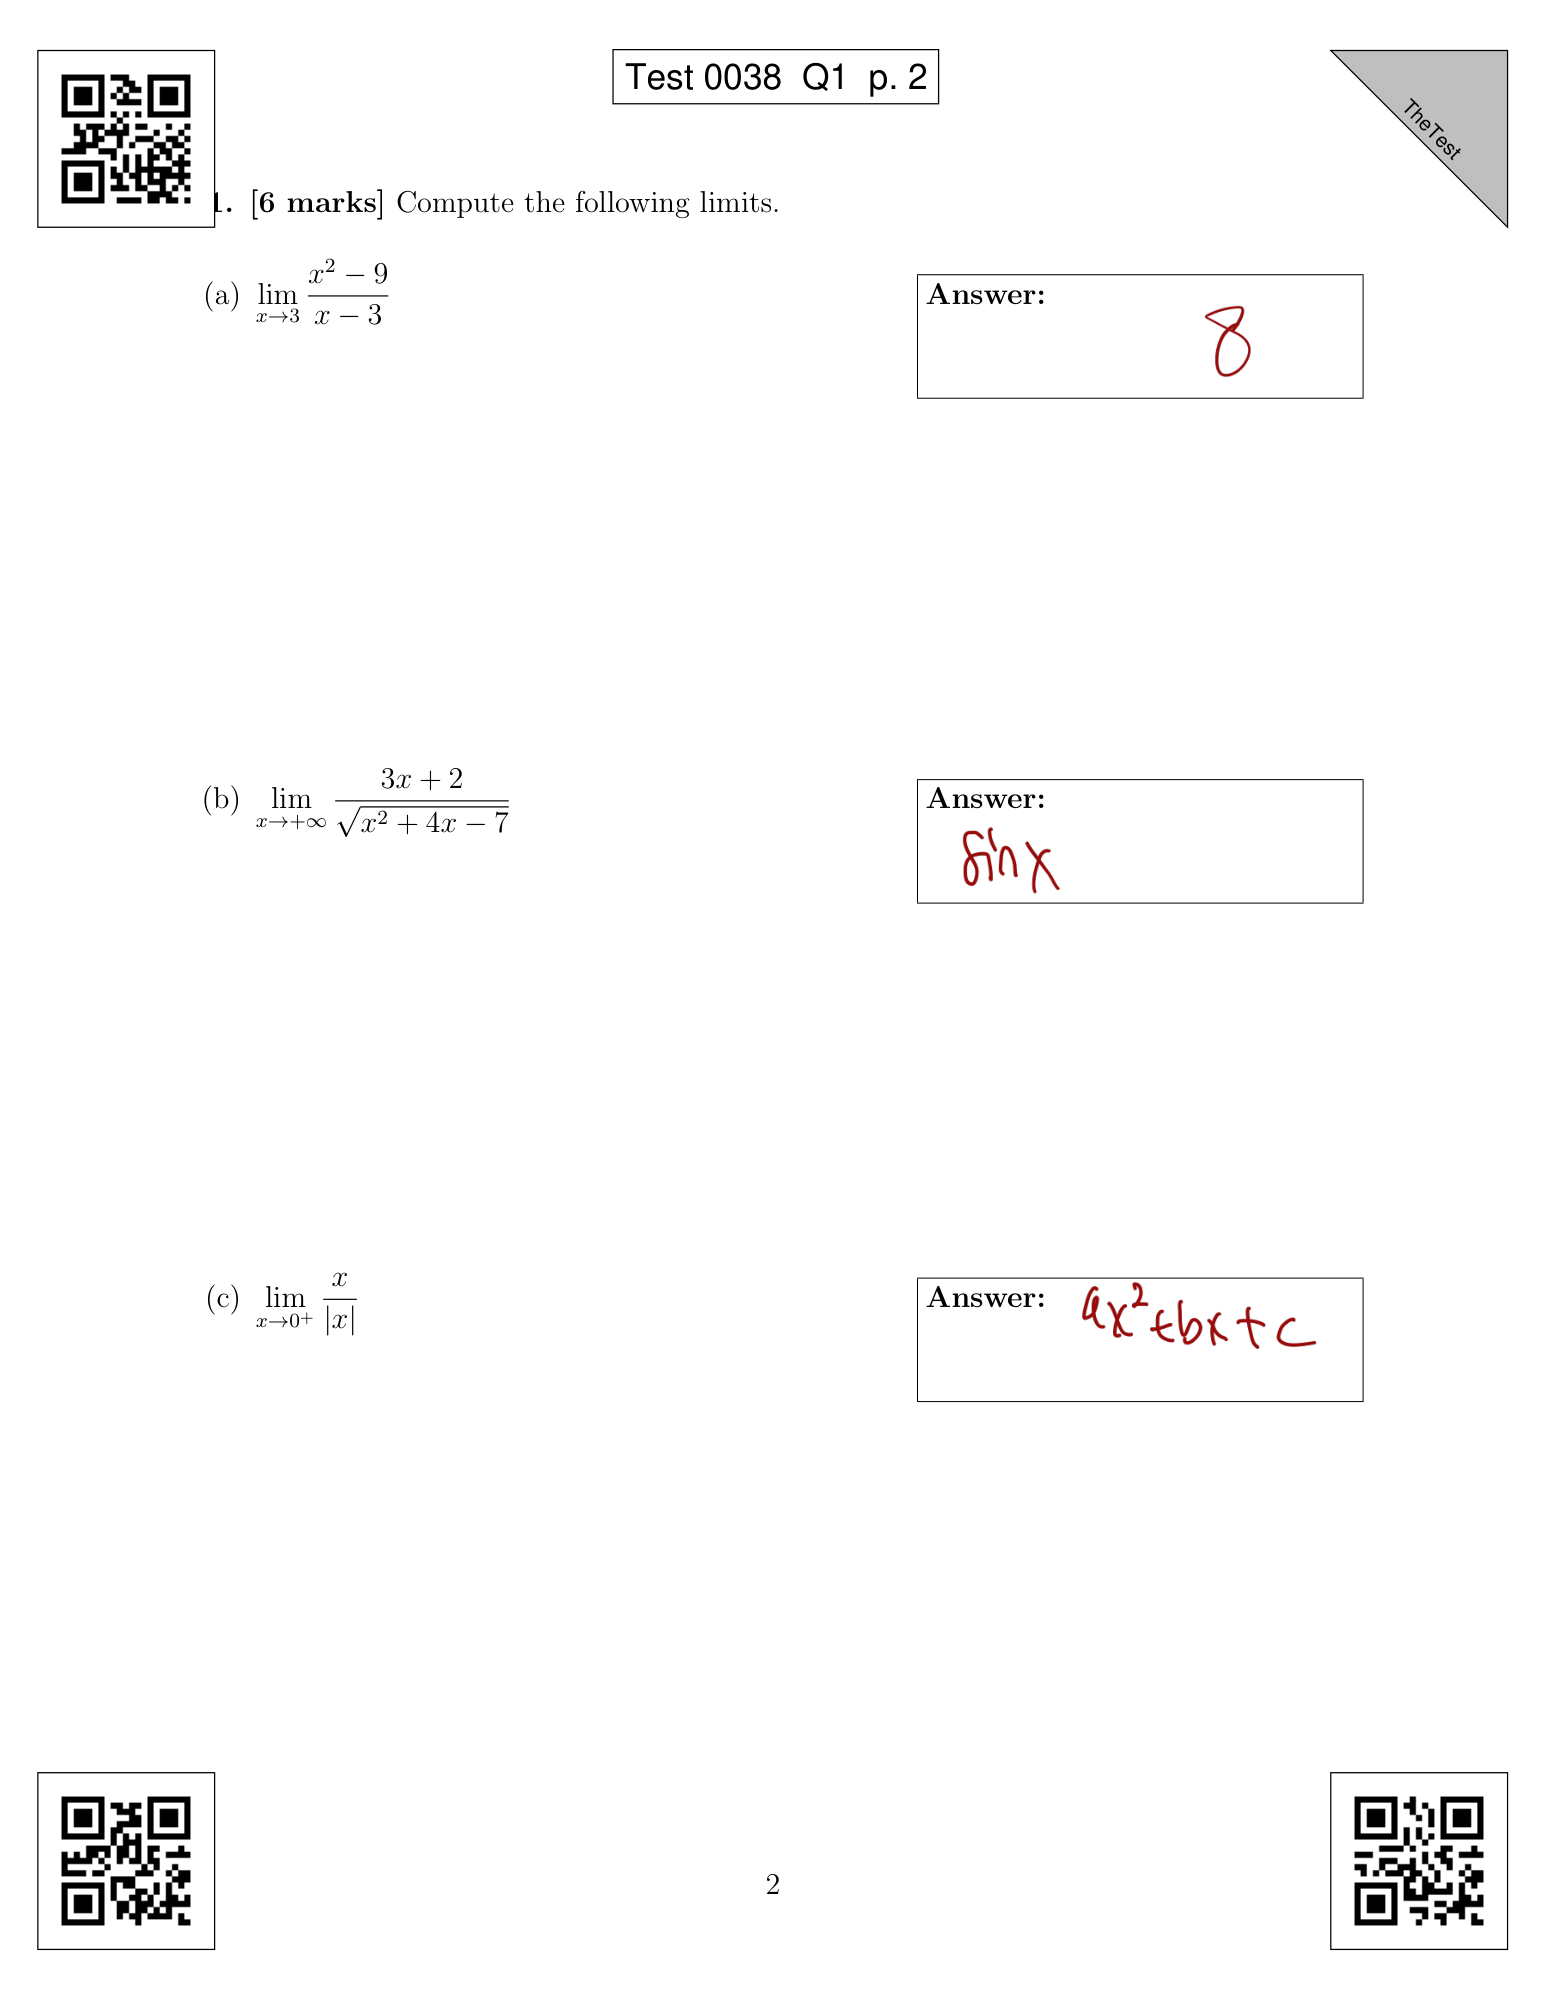 Test 0038 Q1 p. 2
TheTest
1. [6 marks] Compute the following limits.
(a) lim x→3 x² − 9 / x − 3
Answer:
8
(b) lim x→+∞ 3x + 2 / √x² + 4x − 7
Answer:
sin x
(c) lim x→0⁺ x / |x|
Answer: ax² + bx + c
2